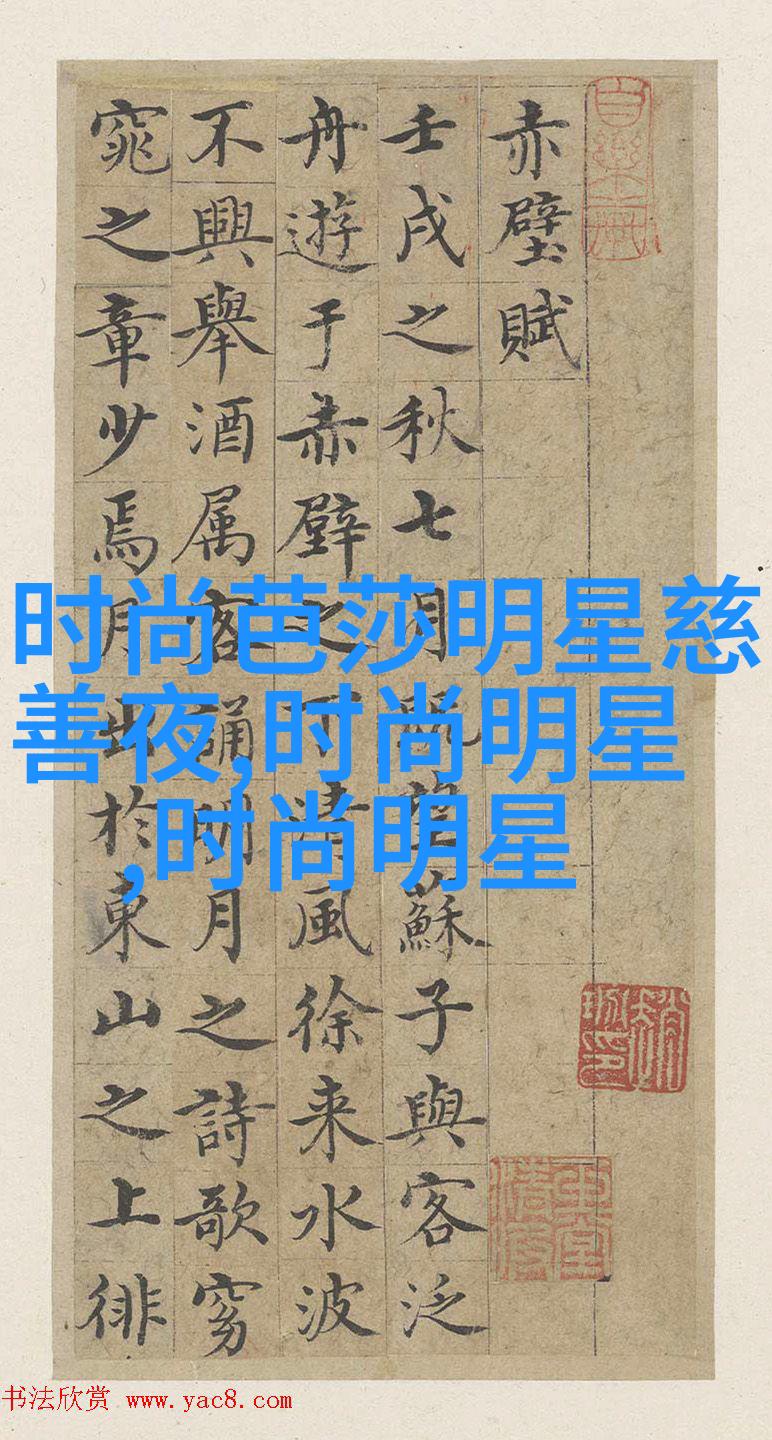 赤壁賦
壬戌之秋七月既望蘇子與客泛
舟遊于赤壁之下清風徐来水波
不興舉酒属客誦明月之詩歌窈
窕之章少焉月出於東山之上徘
时尚芭莎明星慈
善夜,时尚明星
,时尚明星
书法欣赏 www.yac8.com